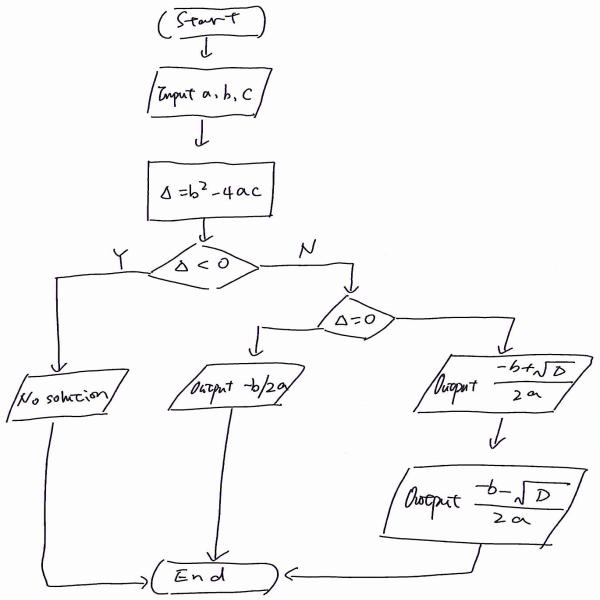 Start
Input a, b, c
Δ=b²-4ac
Y
Δ<0
N
Δ=0
No solution
Output -b/2a
Output (-b+√D)/2a
Output (-b-√D)/2a
End